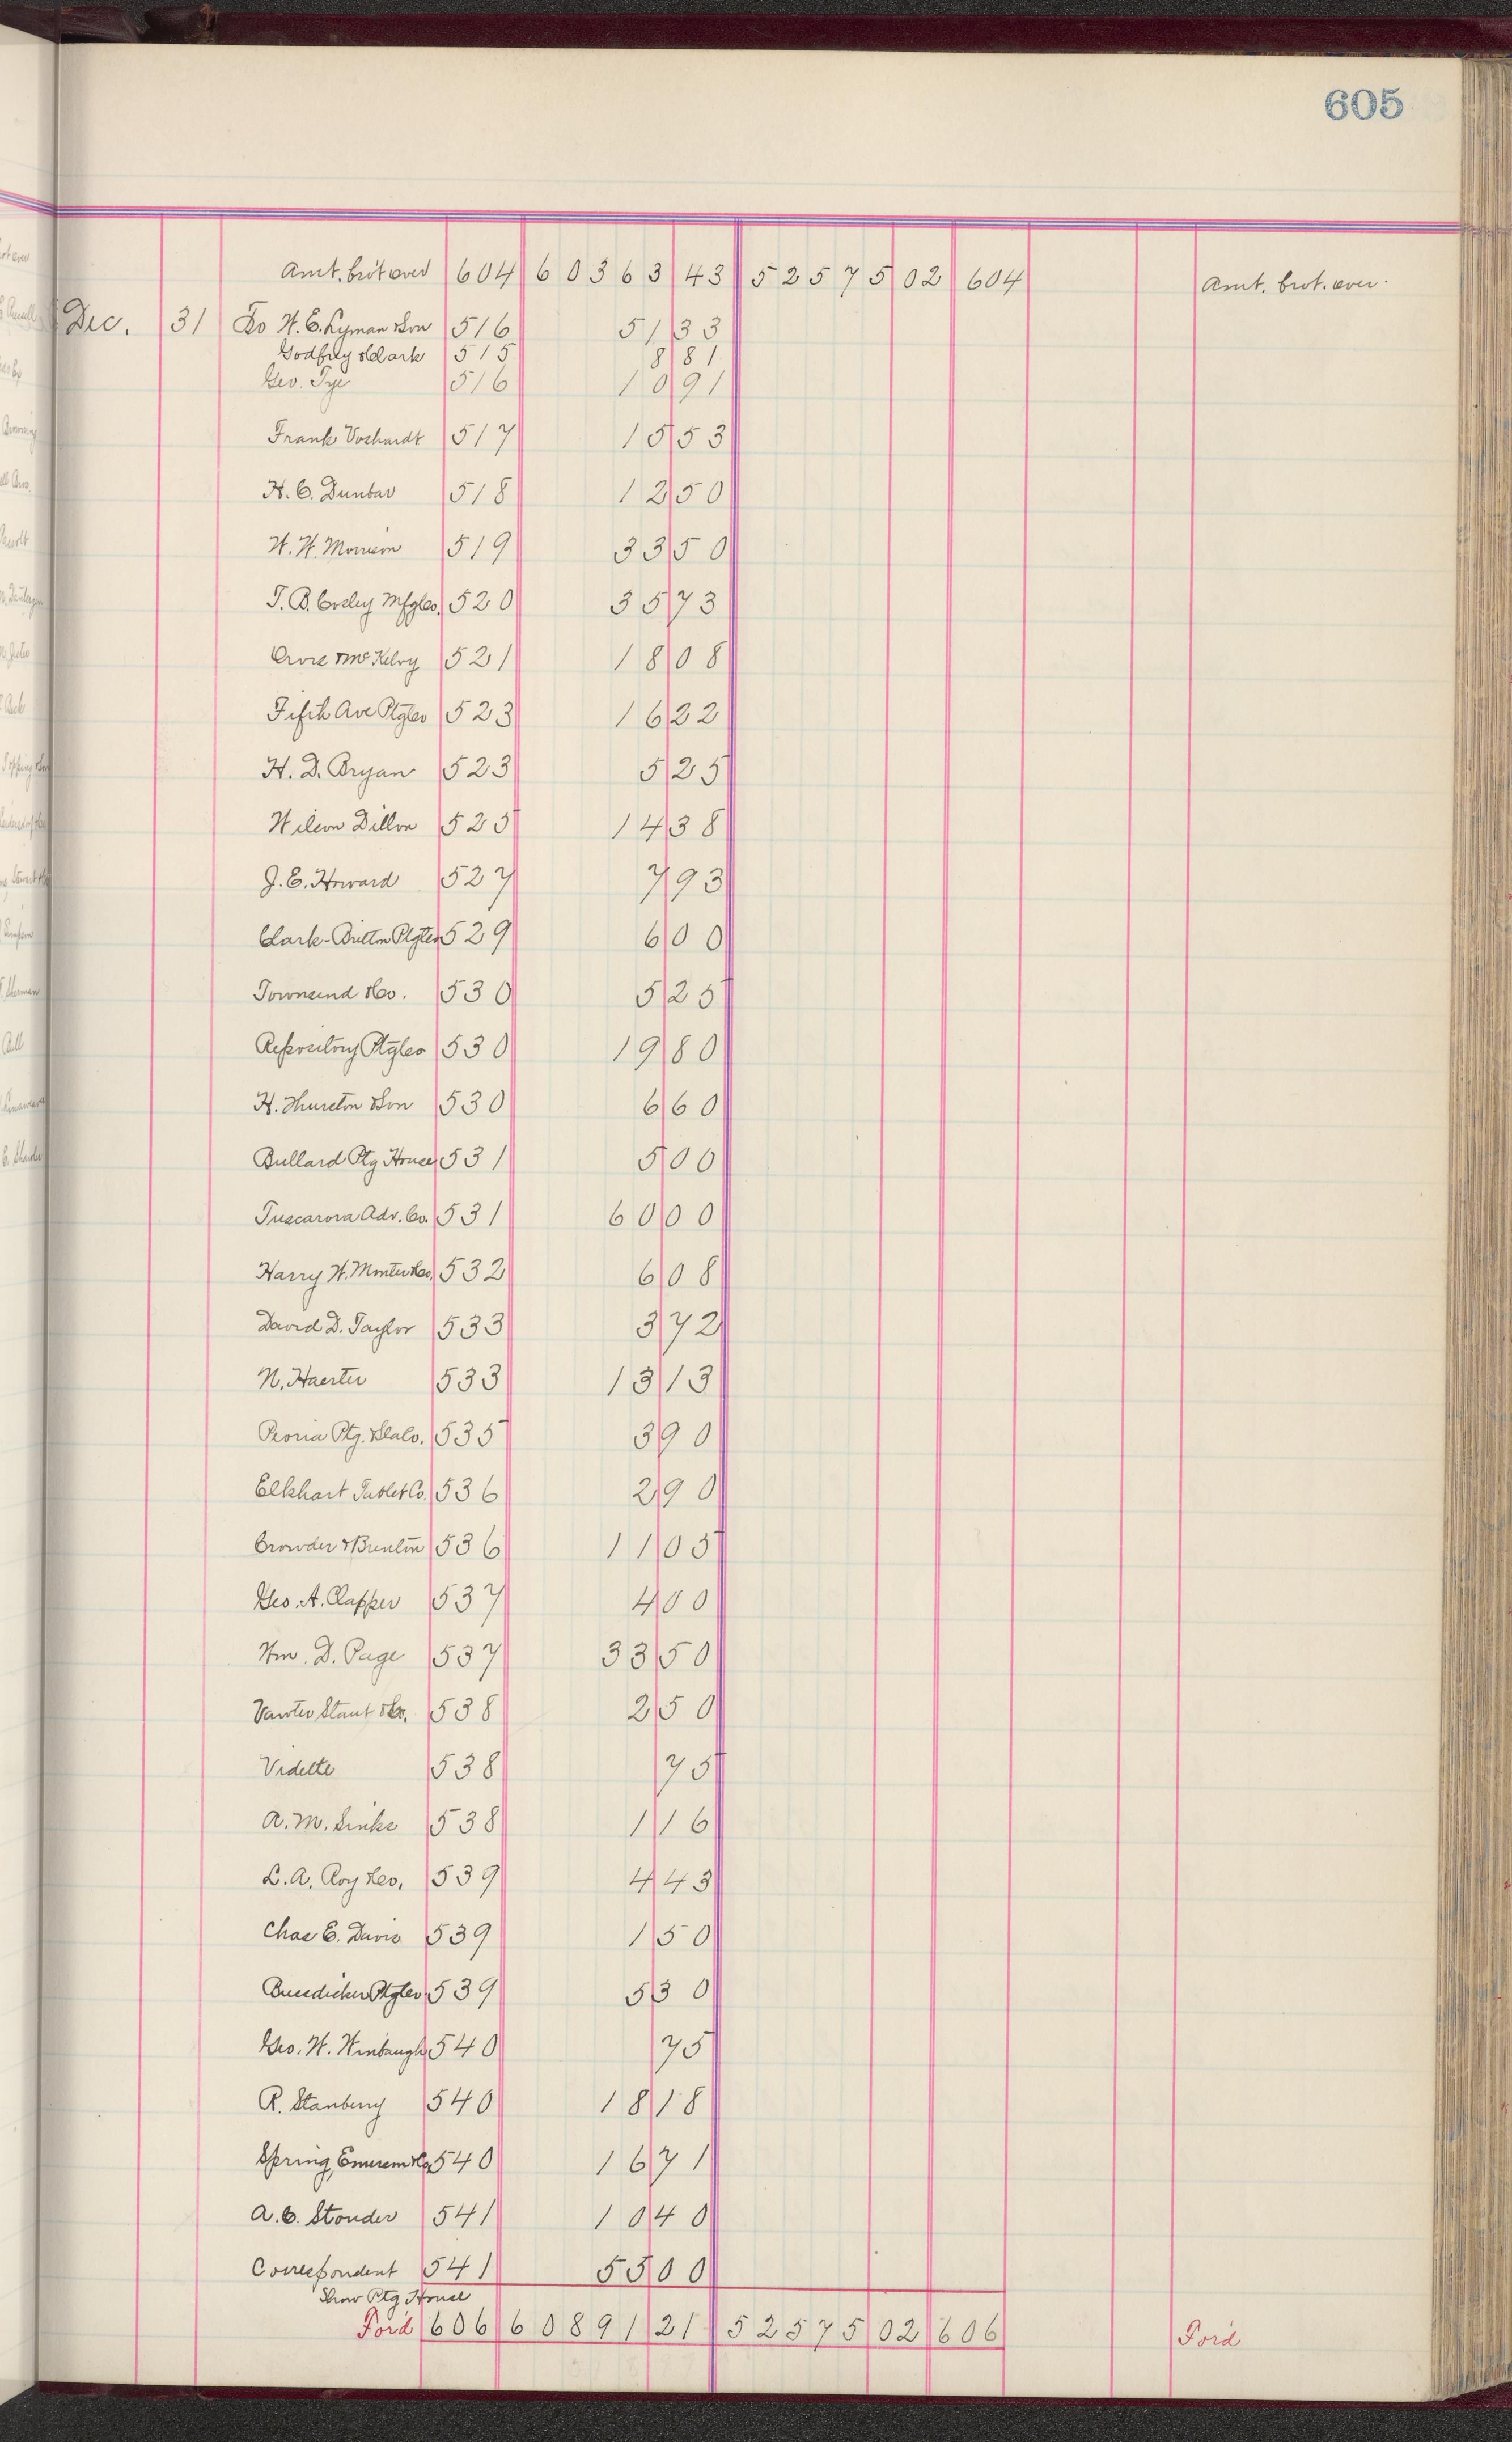 605
Amt. brot over 604 60363 43 52575 02 604 Amt. brot. over.
Dec. 31 To W. E. Lyman & Son 516 51 33
Godfrey & Clark 515 8 81
Geo. Tye 516 10 91
Frank Voshardt 517 15 53
H. C. Dunbar 518 12 50
W. W. Morrison 519 33 50
T. B. Mfg Co. 520 35 73
& McKelvy 521 18 08
Fifth Ave Ptg Co 523 16 22
H. D. Bryan 523 5 25
Wilson Dillon 525 14 38
J. E. Howard 527 7 93
Clark-Britton Ptg Co 529 6 00
Townsend & Co. 530 5 25
Repository Ptg Co 530 19 80
H. Thurston & Son 530 6 60
Bullard Ptg House 531 5 00
Tuscarora Adv. Co. 531 60 00
Harry W. & Co. 532 6 08
David D. Taylor 533 3 72
N. Haerter 533 13 13
Peoria Ptg. & Sta Co. 535 3 90
Elkhart Tablet Co. 536 2 90
Crowder & 536 11 05
Geo. A. Clapper 537 4 00
Wm. D. Page 537 33 50
Vawter Staut & Co. 538 2 50
Vidette 538 75
A. M. Sinks 538 1 16
L. A. Roy & Co. 539 4 43
Chas E. Davis 539 1 50
Ptg Co 539 5 30
Geo. W. Winbaugh 540 75
R. Stanberry 540 18 18
Spring, Emerson & Co 540 16 71
A. C. Stouder 541 10 40
Correspondent 541 55 00
Show Ptg House
Ford 606 60891 21 52575 02 606 Ford